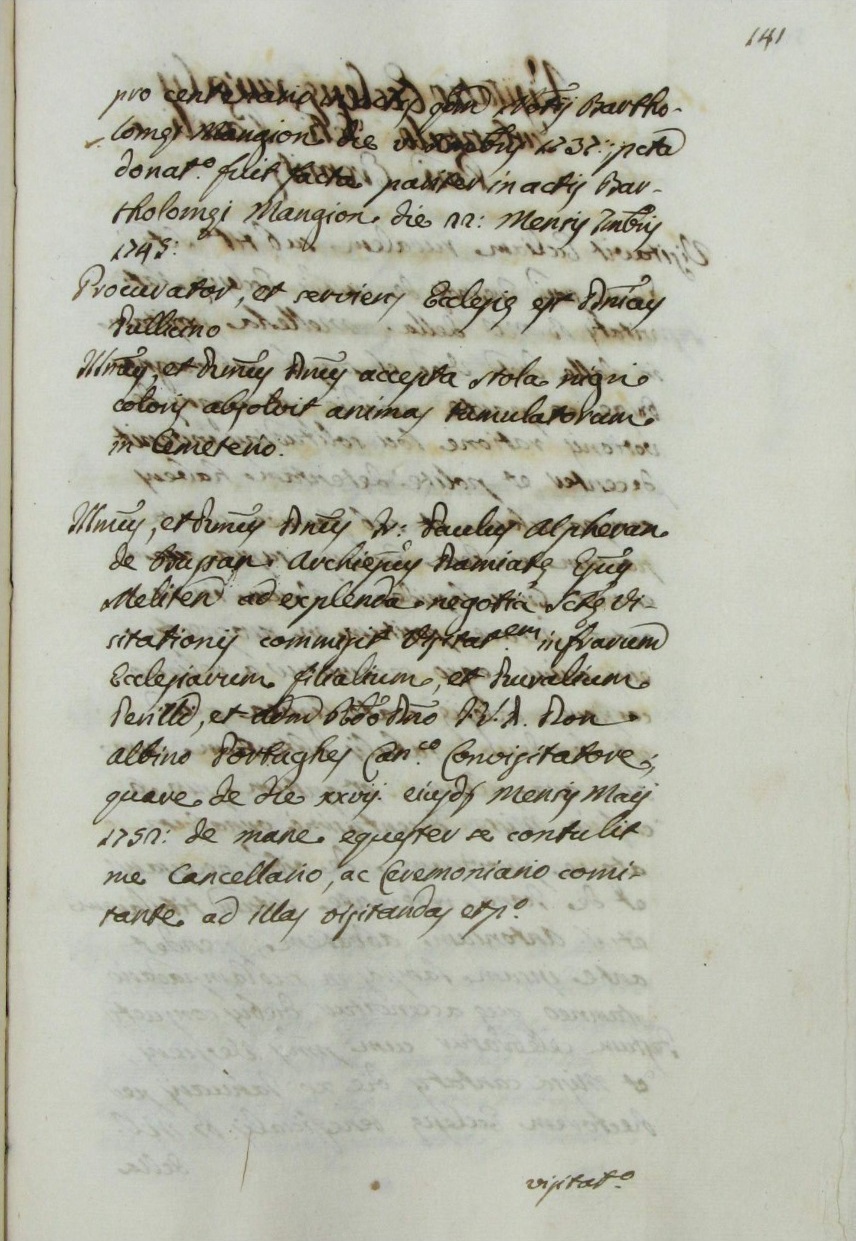 141
pro centenario in actis qdm Notrij Bartho-
lomęi Mangion die Xmbris 1737: pcta
donat.o fuit facta pariter in actis Bar-
tholomęi Mangion die 22: Mensis Xmbris
1745:
Procurator, et serviens Ecclesię est Dnicus
Pullicino
Illmus, et Rmus Dnus accepta stola nigri
coloris absolvit animas tumulatorum
in Cemeterio.
Illmus, et Rmus Dnus Fr: Paulus Alpheran
de Bussan Archiepus Damiatę Epus
Meliten ad explenda negotia Sctę Vi-
sitationis commisit Visitat.em infrarum
Ecclesiarum filialium, et Ruralium
et Adm Rdo Dno J.V.D. Don
Albino Portughes Can.co Convisitatore;
quare de die xxvij. eiusd Mensis Maij
1752: de mane equester se contulit
me Cancellario, ac Ceremoniario comi-
tante ad illas visitandas et p.o
visitat.o